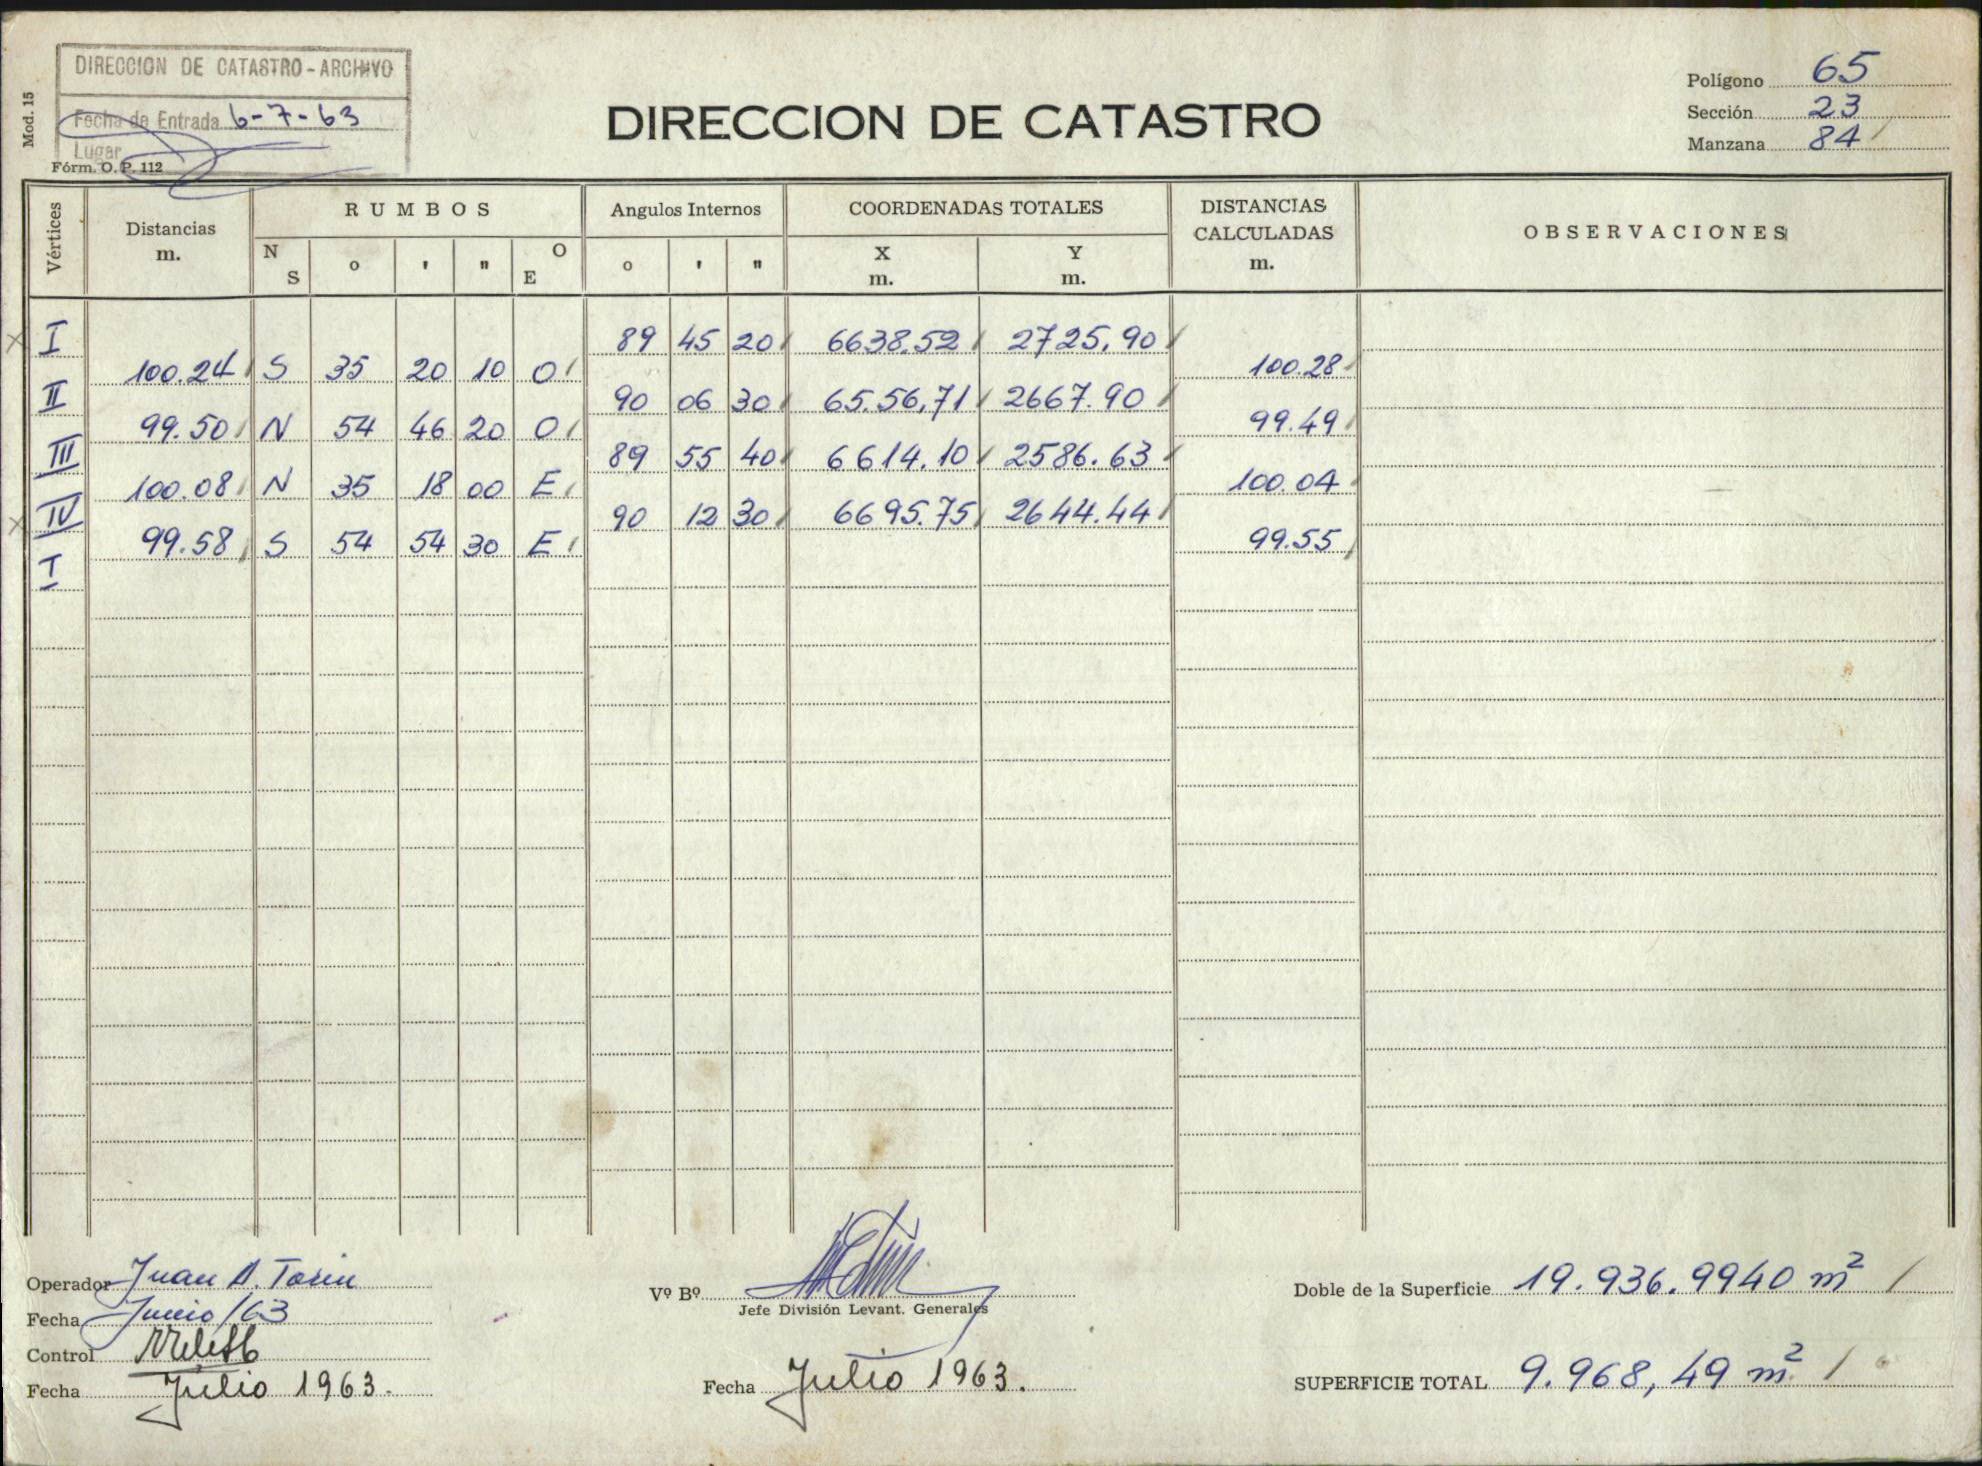 DIRECCION DE CATASTRO - ARCHIVO
Fecha de Entrada 6-7-63
Lugar
Mod. 15
Fórm. O. P. 112
DIRECCION DE CATASTRO
Polígono 65
Sección 23
Manzana 84
Vértices Distancias m. RUMBOS Angulos Internos COORDENADAS TOTALES DISTANCIAS CALCULADAS m. OBSERVACIONES
N S o ' " O E o ' " X m. Y m.
I 89 45 20 6638.52 2725,90
100.24 S 35 20 10 O 100.28
II 90 06 30 65.56,71 2667.90
99.50 N 54 46 20 O 99.49
III 89 55 40 6614.10 2586.63
100.08 N 35 18 00 E 100.04
IV 90 12 30 6695.75 2644.44
99.58 S 54 54 30 E 99.55
I
Operador Juan A.
Fecha Junio/63
Control
Fecha Julio 1963.
Vº Bº
Jefe División Levant. Generales
Fecha Julio 1963.
Doble de la Superficie 19.936.9940 m²
SUPERFICIE TOTAL 9.968,49 m²